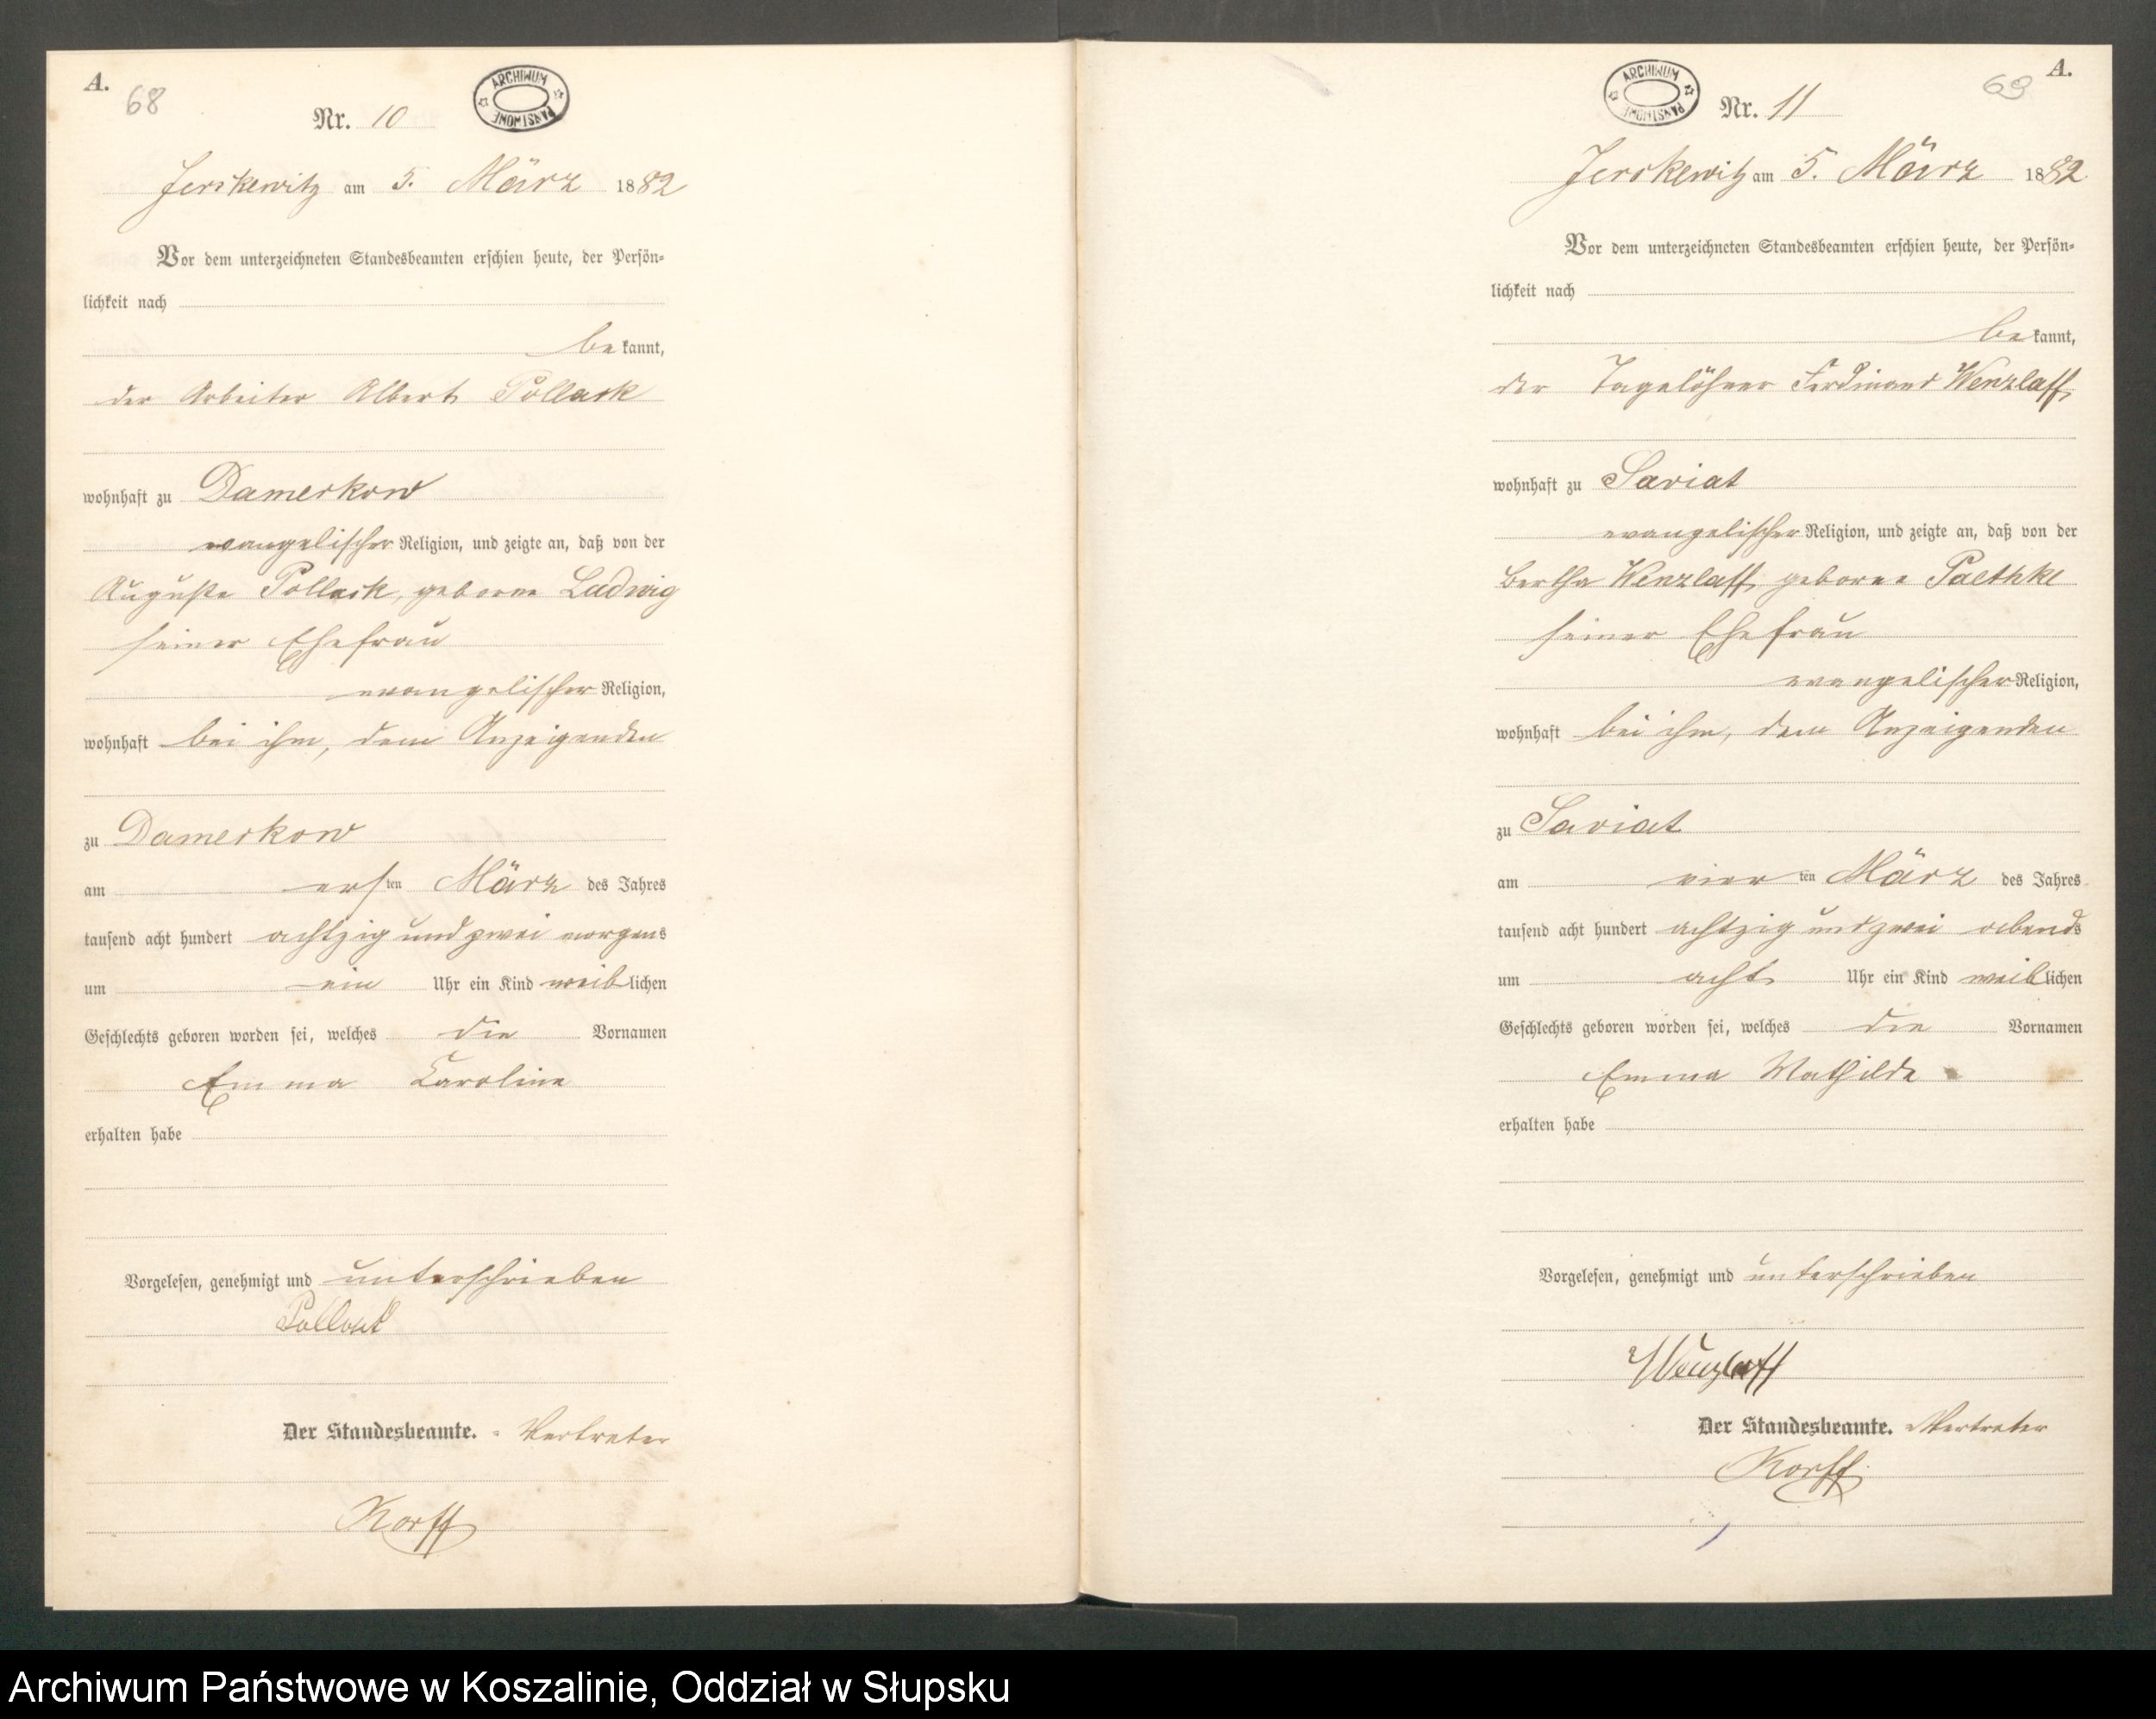 A.
68
Nr. 10
ARCHIWUM PAŃSTWOWE
Jerskewitz am 5. März 1882
Vor dem unterzeichneten Standesbeamten erschien heute, der Persön-
lichkeit nach
be kannt,
der Arbeiter Albert Pollack
wohnhaft zu Damerkow
evangelischer Religion, und zeigte an, daß von der
Auguste Pollack, geborne Ludwig
seiner Ehefrau
evangelischer Religion,
wohnhaft bei ihm, dem Anzeigenden
zu Damerkow
am ersten März des Jahres
tausend acht hundert achtzig und zwei morgens
um ein Uhr ein Kind weiblichen
Geschlechts geboren worden sei, welches die Vornamen
Emma Caroline
erhalten habe
Vorgelesen, genehmigt und unterschrieben
Pollack
Der Standesbeamte. Vertreter
Korff
A.
69
ARCHIWUM PAŃSTWOWE
Nr. 11
Jerskewitz am 5. März 1882
Vor dem unterzeichneten Standesbeamten erschien heute, der Persön-
lichkeit nach
be kannt,
der Tagelöhner Ferdinand Wenzlaff
wohnhaft zu Saviat
evangelischer Religion, und zeigte an, daß von der
Bertha Wenzlaff, geborne Paethke
seiner Ehefrau
evangelischer Religion,
wohnhaft bei ihm, dem Anzeigenden
zu Saviat
am vierten März des Jahres
tausend acht hundert achtzig und zwei abends
um acht Uhr ein Kind weiblichen
Geschlechts geboren worden sei, welches die Vornamen
Emma Mathilde
erhalten habe
Vorgelesen, genehmigt und unterschrieben
Wenzlaff
Der Standesbeamte. Vertreter
Korff
Archiwum Państwowe w Koszalinie, Oddział w Słupsku